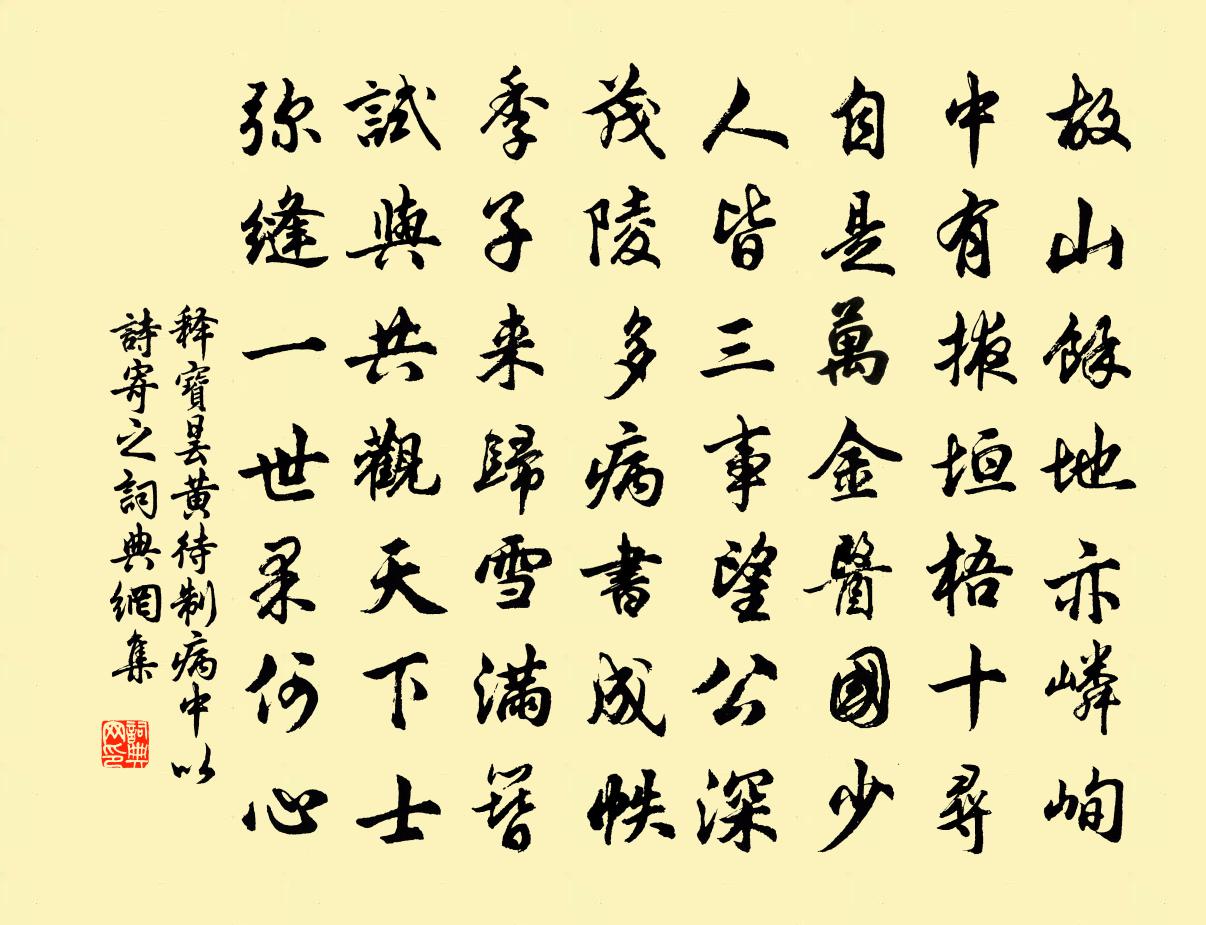 故山餘地亦嶙峋
中有掖垣梧十尋
自是萬金醫國少
人皆三事望公深
茂陵多病書成帙
季子来歸雪满簪
試與共觀天下士
弥縫一世果何心
释寶昙黄待制病中以
詩寄之詞典網集
詞典
网印